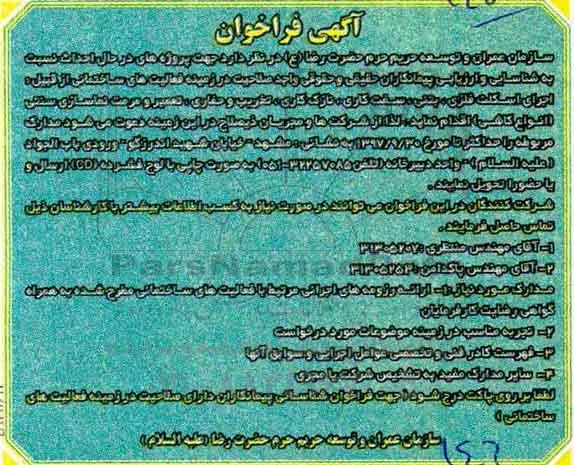 آگهی فراخوان
سازمان عمران و توسعه حریم حرم حضرت رضا (ع) در نظر دارد جهت پروژه های در حال احداث نسبت
به شناسایی و ارزیابی پیمانکاران حقیقی و حقوقی واجد صلاحیت در زمینه فعالیت های ساختمانی از قبیل :
اجرای اسکلت فلزی ، بتنی ، سفت کاری ، نازک کاری ، تخریب و حفاری ، تعمیر و مرمت نماسازی سنتی
(انواع کاشی) اقدام نماید . لذا از شرکت ها و مجریان ذیصلاح در این زمینه دعوت می شود مدارک
مربوطه را حداکثر تا مورخ ۱۳۹۷/۹/۳۰ به نشانی : مشهد - خیابان شهید اندرزگو - ورودی باب الجواد
(علیه السلام) - واحد دبیرخانه (تلفن ۳۲۲۵۷۰۸۵-۰۵۱) به صورت چاپی یا لوح فشرده (CD) ارسال و
یا حضورا تحویل نمایند .
شرکت کنندگان در این فراخوان می توانند در صورت نیاز به کسب اطلاعات بیشتر با کارشناسان ذیل
تماس حاصل فرمایند .
۱- آقای مهندس منتظری ۳۱۳۰۵۲۰۷
۲- آقای مهندس پاکدامن ۳۱۳۰۵۲۵۳
مدارک مورد نیاز : ۱- ارائه رزومه های اجرائی مرتبط با فعالیت های ساختمانی مطرح شده به همراه
گواهی رضایت کارفرمایان
۲- تجربه مناسب در زمینه موضوعات مورد درخواست
۳- فهرست کادر فنی و تخصصی عوامل اجرایی و سوابق آنها
۴- سایر مدارک مفید به تشخیص شرکت یا مجری
لطفا بر روی پاکت درج شود (جهت فراخوان شناسائی پیمانکاران دارای صلاحیت در زمینه فعالیت های
ساختمانی)
سازمان عمران و توسعه حریم حرم حضرت رضا (علیه السلام)